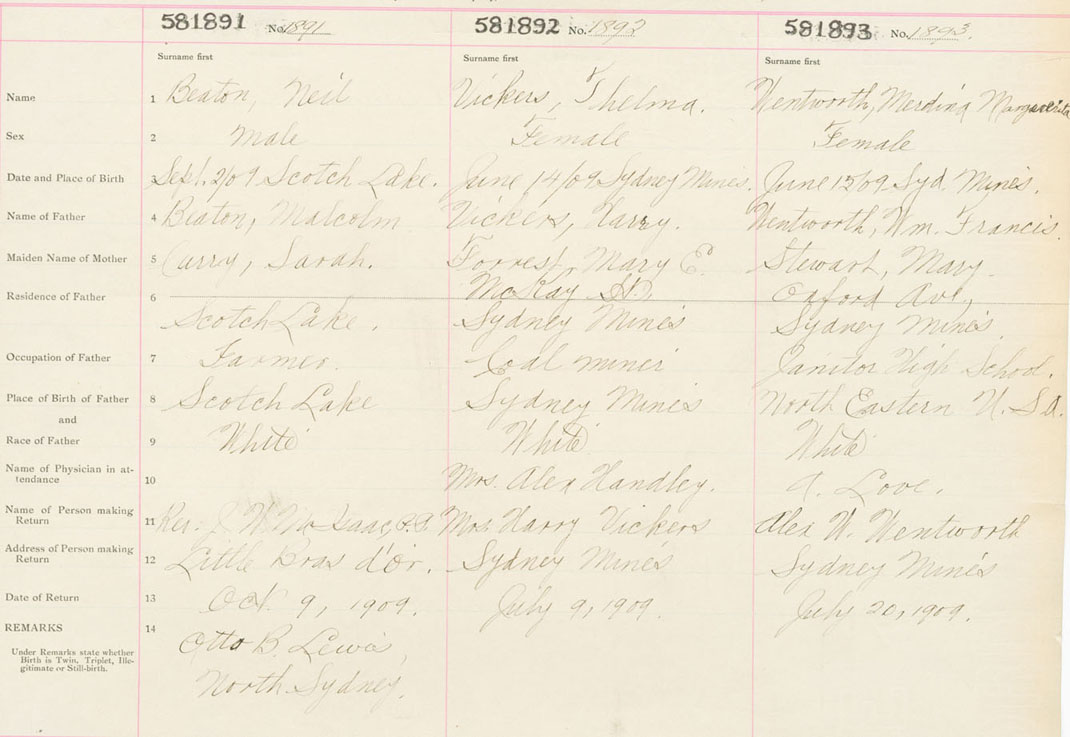 581891 No. 1891 581892 No. 1892 581893 No. 1893.
Surname first Surname first Surname first
Name 1 Beaton, Neil Vickers, Thelma. Wentworth, Merdina Margaerita
Sex 2 Male Female Female
Date and Place of Birth 3 Sept. 2/09 Scotch Lake. June 14/09 Sydney Mines. June 15/09 Syd. Mines.
Name of Father 4 Beaton, Malcolm Vickers, Harry. Wentworth, Wm. Francis.
Maiden Name of Mother 5 Curry, Sarah. Forrest, Mary E. Stewart, Mary
McKay St., Oxford Ave,
Residence of Father 6 Scotch Lake. Sydney Mines Sydney Mines
Occupation of Father 7 Farmer. Coal miner Janitor High School.
Place of Birth of Father 8 Scotch Lake Sydney Mines North Eastern U.S.A.
and
Race of Father 9 White White White
Name of Physician in at-
tendance 10 Mrs. Alex Handley. A. Love.
Name of Person making
Return 11 Rev. J. W. Isaac, P.P. Mrs. Harry Vickers Alex W. Wentworth
Address of Person making
Return 12 Little Bras d'or. Sydney Mines Sydney Mines
Date of Return 13 Oct. 9, 1909. July 9, 1909. July 20, 1909.
REMARKS 14 Otto B. Lewis,
Under Remarks state whether
Birth is Twin, Triplet, Ille-
gitimate or Still-birth.
North Sydney.